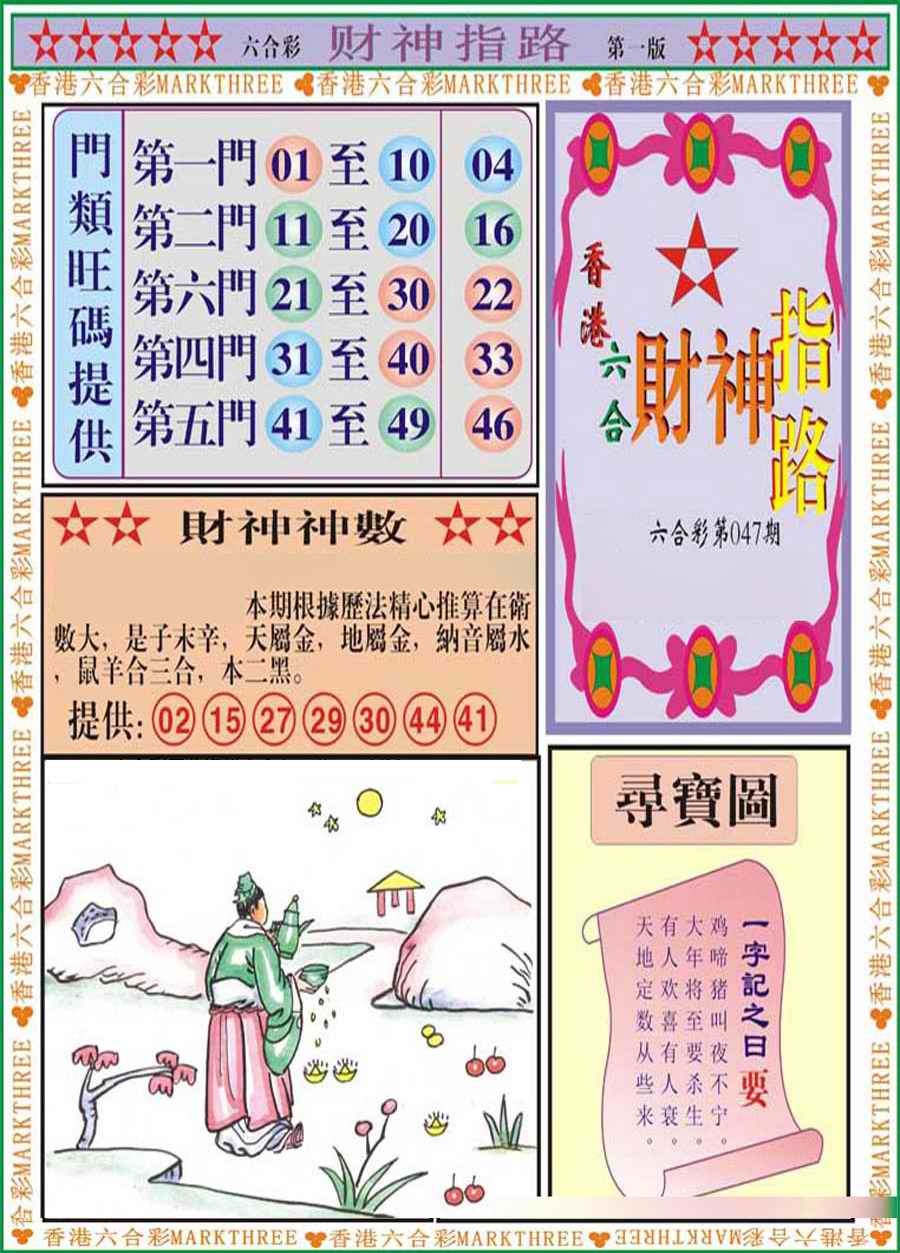 六合彩 财神指路 第一版
香港六合彩MARKTHREE 香港六合彩MARKTHREE 香港六合彩MARKTHREE
門類旺碼提供
第一門 01 至 10 04
第二門 11 至 20 16
第六門 21 至 30 22
第四門 31 至 40 33
第五門 41 至 49 46
香港
六合
財神
指路
六合彩第047期
財神神數
本期根據歷法精心推算在衛
數大，是子末辛，天屬金，地屬金，納音屬水
，鼠羊合三合，本二黑。
提供: 02 15 27 29 30 44 41
尋寶圖
一字記之曰 要
鸡啼猪叫夜不宁。
大年将至要杀生。
有人欢喜有人衰。
天地定数从些来。
香港六合彩MARKTHREE
香港六合彩MARKTHREE
香港六合彩MARKTHREE
合彩MARKTHREE
香港六合彩MARKTHREE
香港六合彩MARKTHREE
香港六合彩MARKTHREE
香港六合彩MARKTHREE 香港六合彩MARKTHREE 香港六合彩MARKTHREE